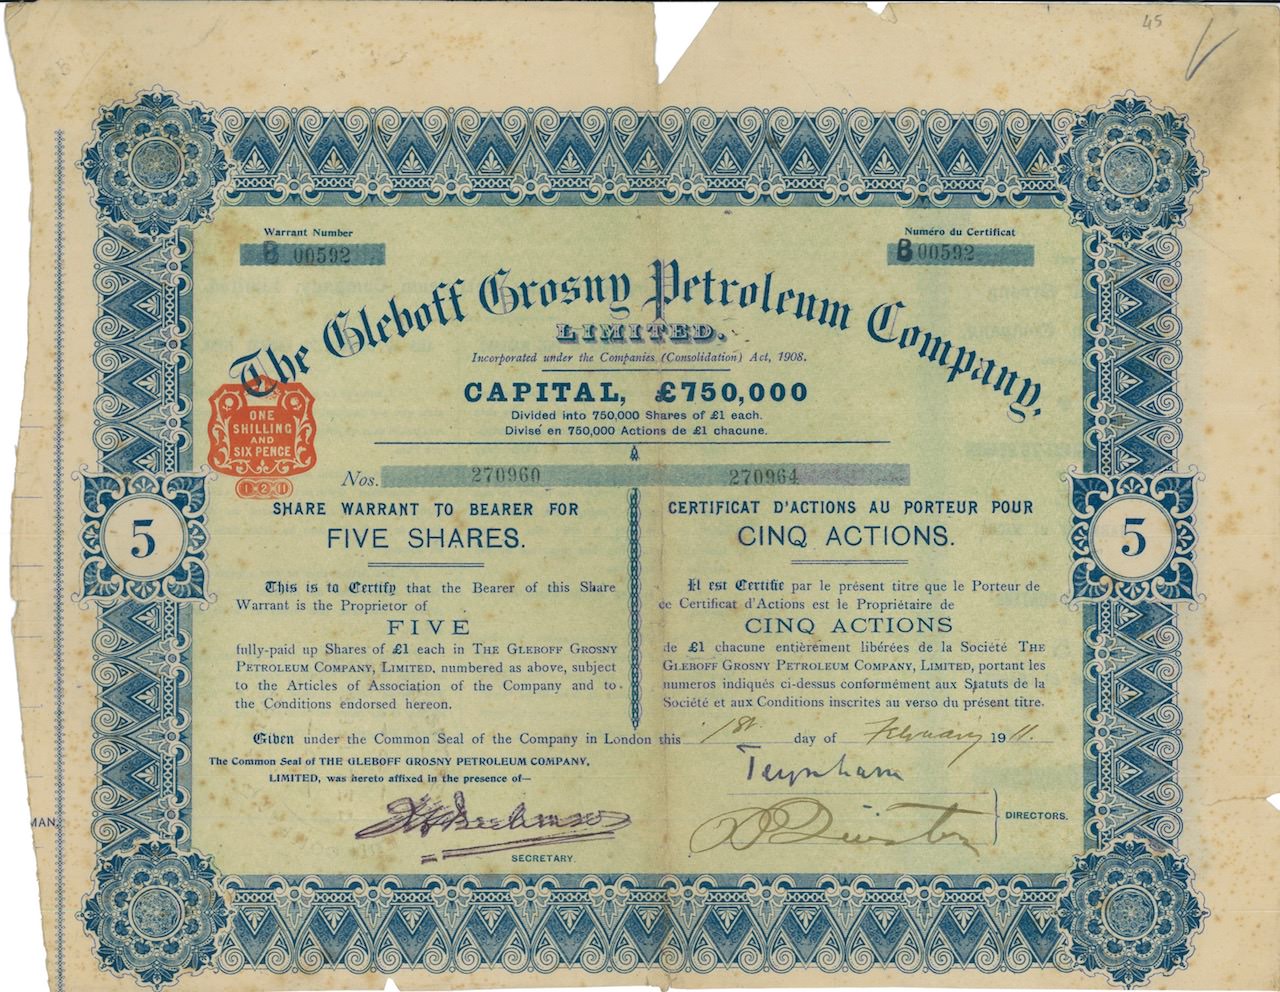 45
Warrant Number
B 00592
Numéro du Certificat
B 00592
The Gleboff Grosny Petroleum Company,
LIMITED.
Incorporated under the Companies (Consolidation) Act, 1908.
CAPITAL, £750,000
Divided into 750,000 Shares of £1 each.
Divisé en 750,000 Actions de £1 chacune.
ONE
SHILLING
AND
SIX PENCE
1 2 11
Nos. 270960 270964
SHARE WARRANT TO BEARER FOR
FIVE SHARES.
5
This is to Certify that the Bearer of this Share
Warrant is the Proprietor of
FIVE
fully-paid up Shares of £1 each in THE GLEBOFF GROSNY
PETROLEUM COMPANY, LIMITED, numbered as above, subject
to the Articles of Association of the Company and to
the Conditions endorsed hereon.
CERTIFICAT D'ACTIONS AU PORTEUR POUR
CINQ ACTIONS.
5
Il est Certifié par le présent titre que le Porteur de
ce Certificat d'Actions est le Propriétaire de
CINQ ACTIONS
de £1 chacune entièrement libérées de la Société THE
GLEBOFF GROSNY PETROLEUM COMPANY, LIMITED, portant les
numeros indiqués ci-dessus conformément aux Statuts de la
Société et aux Conditions inscrites au verso du présent titre.
Given under the Common Seal of the Company in London this 1st day of February 1911.
The Common Seal of THE GLEBOFF GROSNY PETROLEUM COMPANY,
LIMITED, was hereto affixed in the presence of—
Teynham
DIRECTORS.
SECRETARY.
MAN.